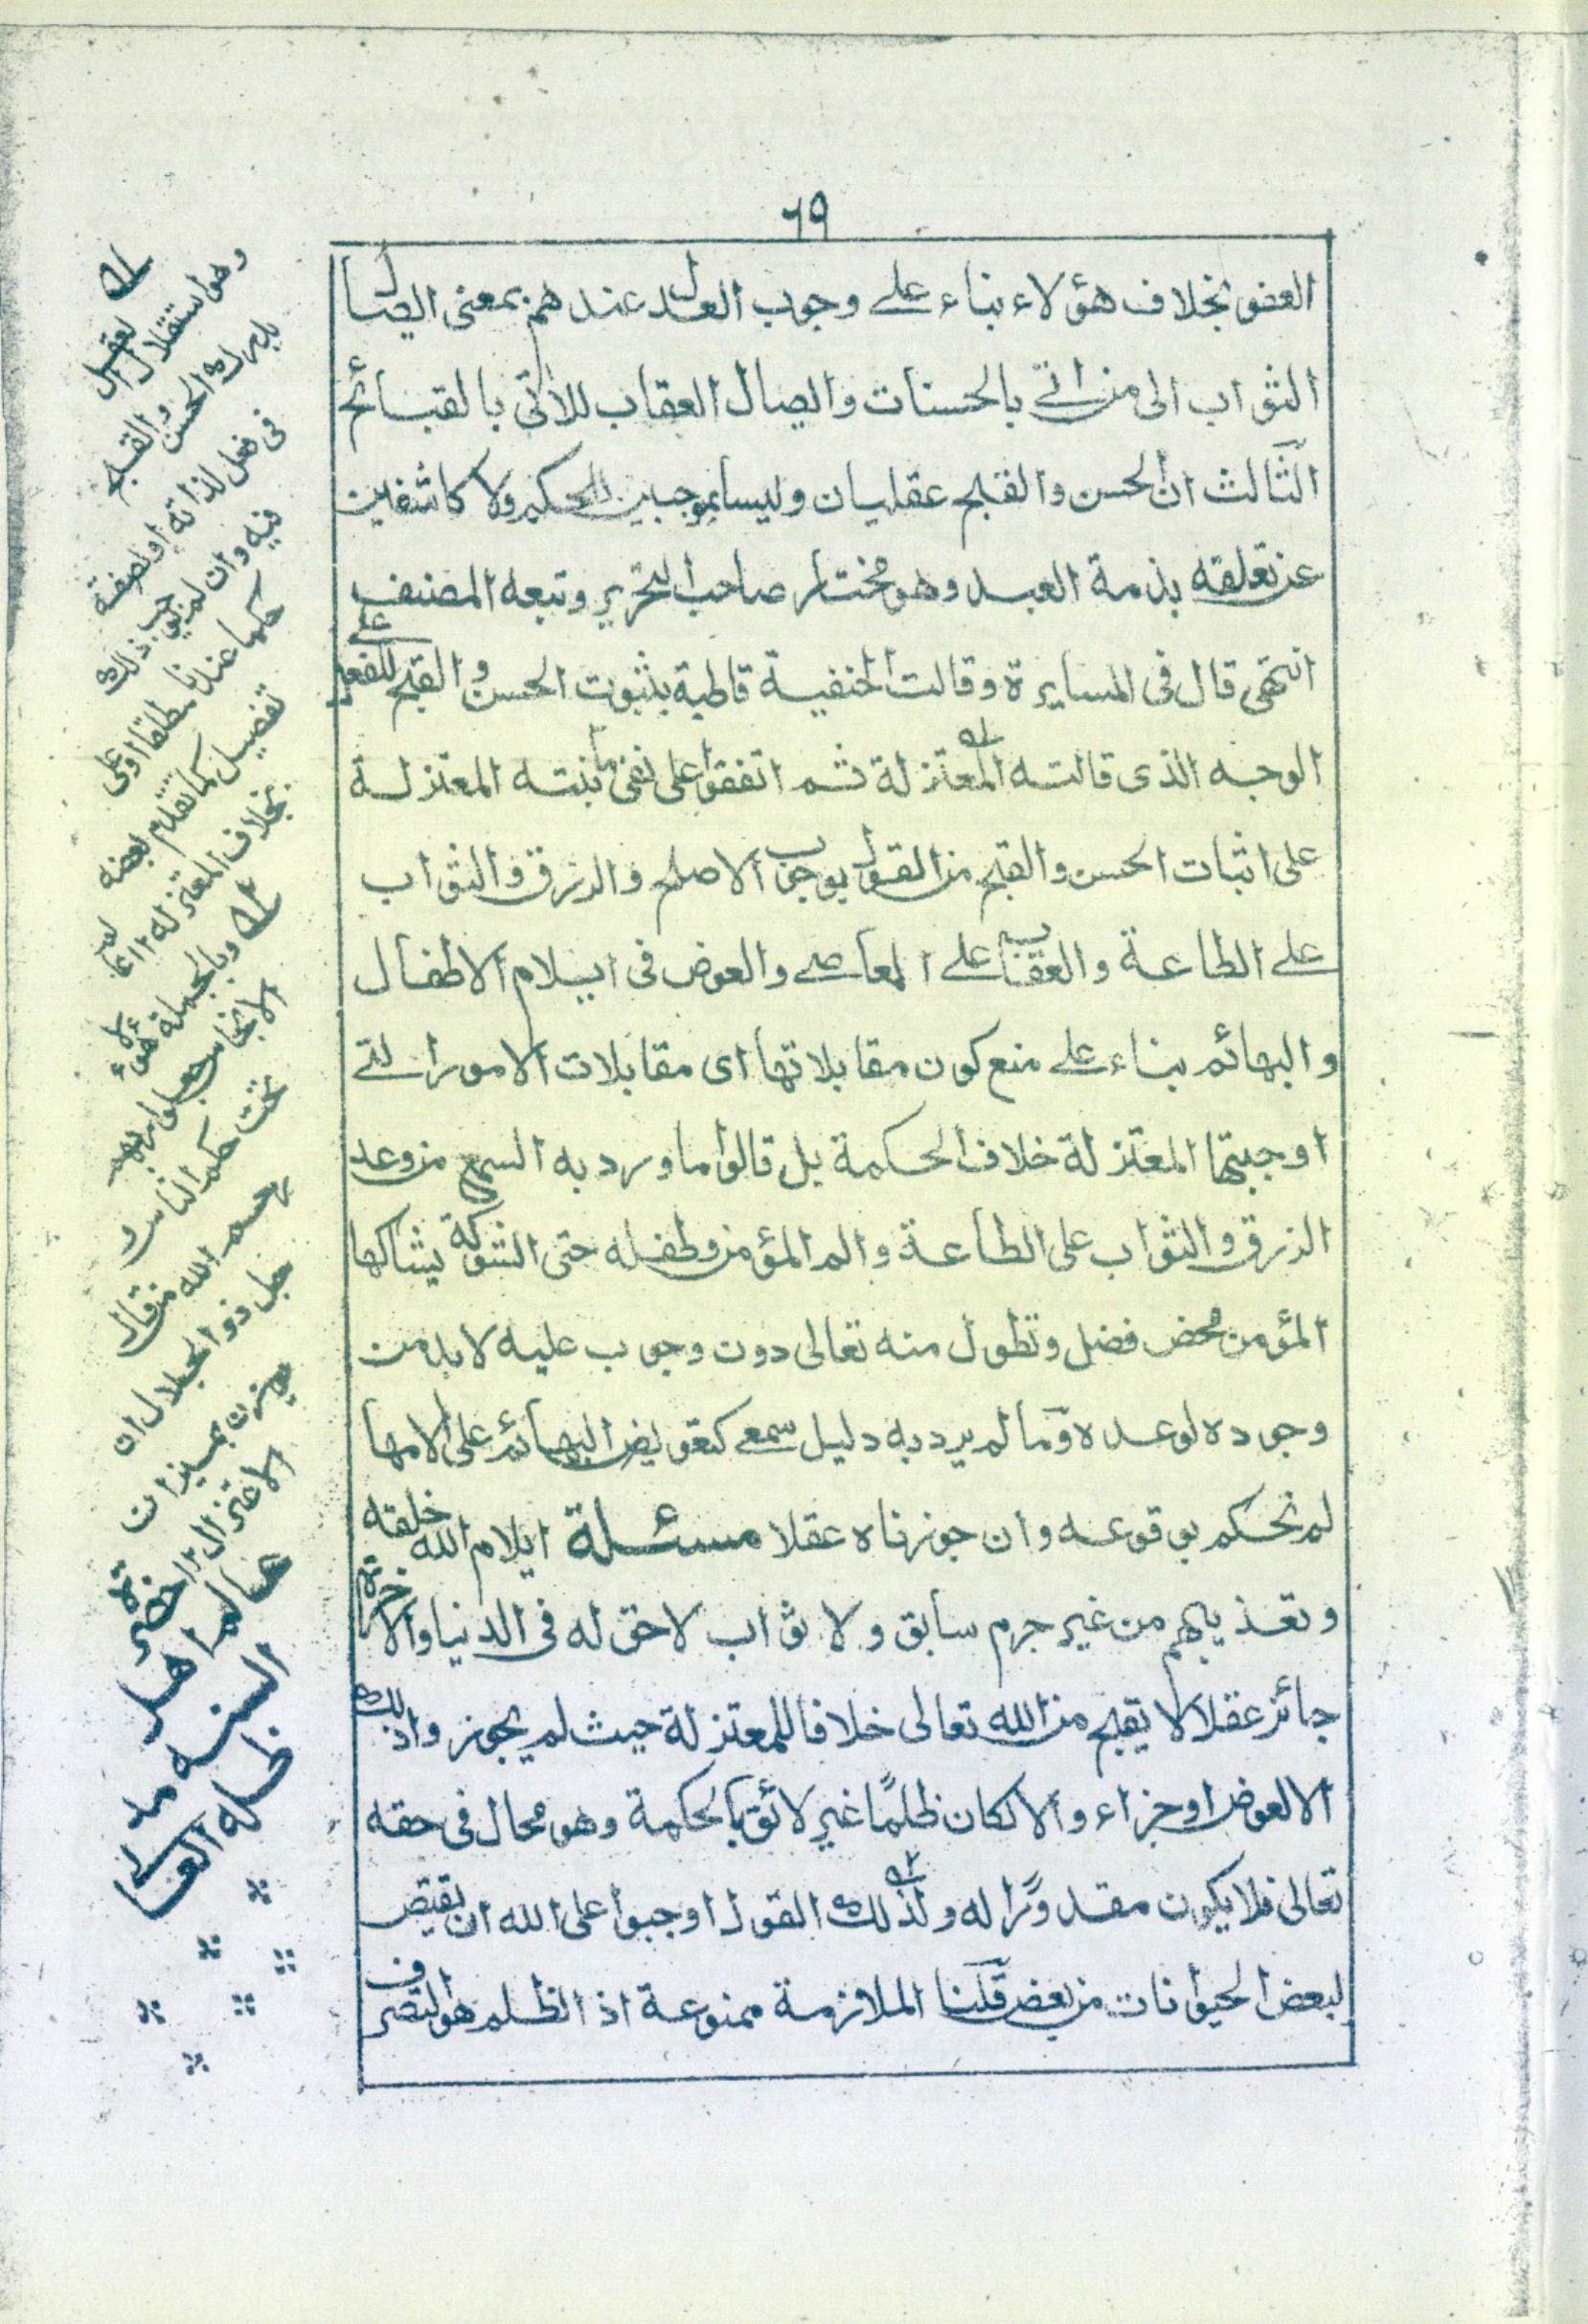 ٦٩
العفو بخلاف هؤلاء بناء على وجوب العدل عندهم بمعنى ايصال
الثواب الى من اتى بالحسنات وايصال العقاب للآتى بالقبائح
الثالث ان الحسن والقبح عقليان وليسا بموجبين للحكم ولا كاشفين
عن تعلقه بذمة العبد وهو مختار صاحب التحرير وتبعه المصنف
انتهى قال فى المسايرة وقالت الحنفية قاطبة بثبوت الحسن والقبح للفعل على
الوجه الذى قالته المعتزلة ثم اتفقوا على نفى ما بنته المعتزلة
على اثبات الحسن والقبح من القول بوجوب الاصلح والرزق والثواب
على الطاعة والعقاب على المعاصى والعوض فى ايلام الاطفال
والبهائم بناء على منع كون مقابلاتها اى مقابلات الامور التى
اوجبتها المعتزلة خلاف الحكمة بل قالوا ما ورد به السمع من وعد
الرزق والثواب على الطاعة والم المؤمن وطفله حتى الشوكة يشاكها
المؤمن محض فضل وتطول منه تعالى دون وجوب عليه لابد من
وجوده لوعده وما لم يرد به دليل سمعى كتعويض البهائم على الامها
لم نحكم بوقوعه وان جوزناه عقلا مسئلة ايلام الله خلقه
وتعذيبهم من غير جرم سابق ولا ثواب لاحق له فى الدنيا والآخرة
جائز عقلا لا يقبح من الله تعالى خلافا للمعتزلة حيث لم يجوزوا ذلك
الا لعوض او جزاء والا لكان ظلمًا غير لائق بالحكمة وهو محال فى حقه
تعالى فلا يكون مقدورًا له ولذلك القول اوجبوا على الله ان يقتص
لبعض الحيوانات من بعض قلنا الملازمة ممنوعة اذ الظلم هو التصرف
وهو استقلال العقل
بدرك الحسن والقبح
فى فعل لذاته او لصفة
فيه وان لم يوجب ذلك
حكما عندنا مطلقا او على
تفصيل كما تقدم بعضه
بخلاف المعتزلة
وبالجملة هؤلاء
تحت حكم الناس و
رحم الله من قال
جل ذو الجلال ان
يوزن بميزان
الاعتزال
عالم اهل
السنة مد
ظله العالى